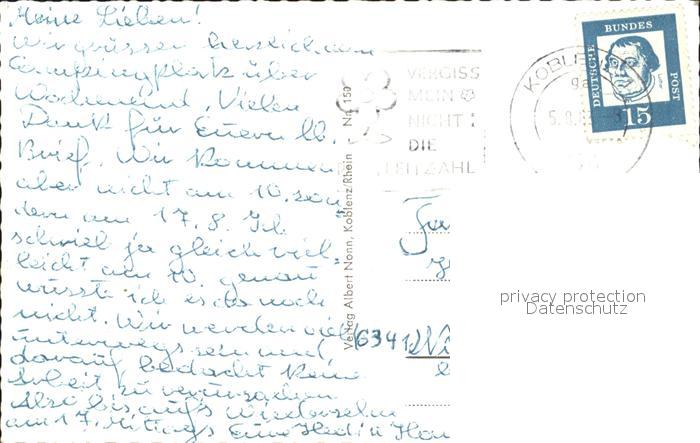 Meine Lieben!
Wir grüssen herzlich vom
Campingplatz über
Wochenend, Vielen
Dank für Euern lb.
Brief. Wir kommen
aber nicht am 10. son
dern am 17. 8. Ich
schrieb ja gleich viel-
leicht am 10. genau
wusste ich es da noch
nicht. Wir werden viel
unterwegs sein und
darauf bedacht keine
Arbeit zu verursachen
Also bis aufs Wiedersehn
am 17. Mittags Eure Hedi u
Verlag Albert Nonn, Koblenz/Rhein Nr. 150
VERGISS
MEIN
NICHT
DIE
LEITZAHL
KOBLE
5. 8. 6
DEUTSCHE BUNDES POST
15
(6341)
privacy protection
Datenschutz